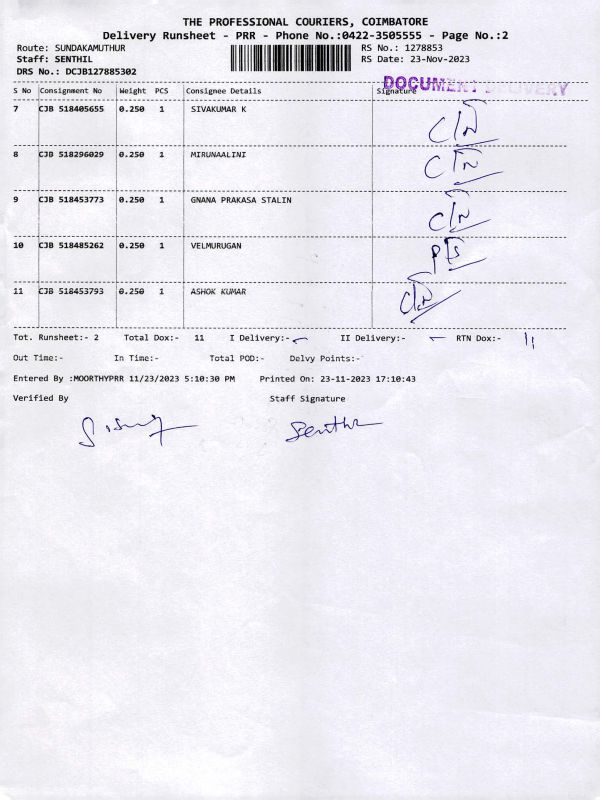 THE PROFESSIONAL COURIERS, COIMBATORE
Delivery Runsheet - PRR - Phone No.:0422-3505555 - Page No.:2
Route: SUNDAKAMUTHUR RS No.: 1278853
Staff: SENTHIL RS Date: 23-Nov-2023
DRS No.: DCJB127885302
DOCUMENT DELIVERY
S No Consignment No Weight PCS Consignee Details Signature
7 CJB 518405655 0.250 1 SIVAKUMAR K
8 CJB 518296029 0.250 1 MIRUNAALINI
9 CJB 518453773 0.250 1 GNANA PRAKASA STALIN
10 CJB 518485262 0.250 1 VELMURUGAN
11 CJB 518453793 0.250 1 ASHOK KUMAR
Tot. Runsheet:- 2 Total Dox:- 11 I Delivery:- II Delivery:- RTN Dox:- 11
Out Time:- In Time:- Total POD:- Delvy Points:-
Entered By :MOORTHYPRR 11/23/2023 5:10:30 PM Printed On: 23-11-2023 17:10:43
Verified By Staff Signature
Senthil